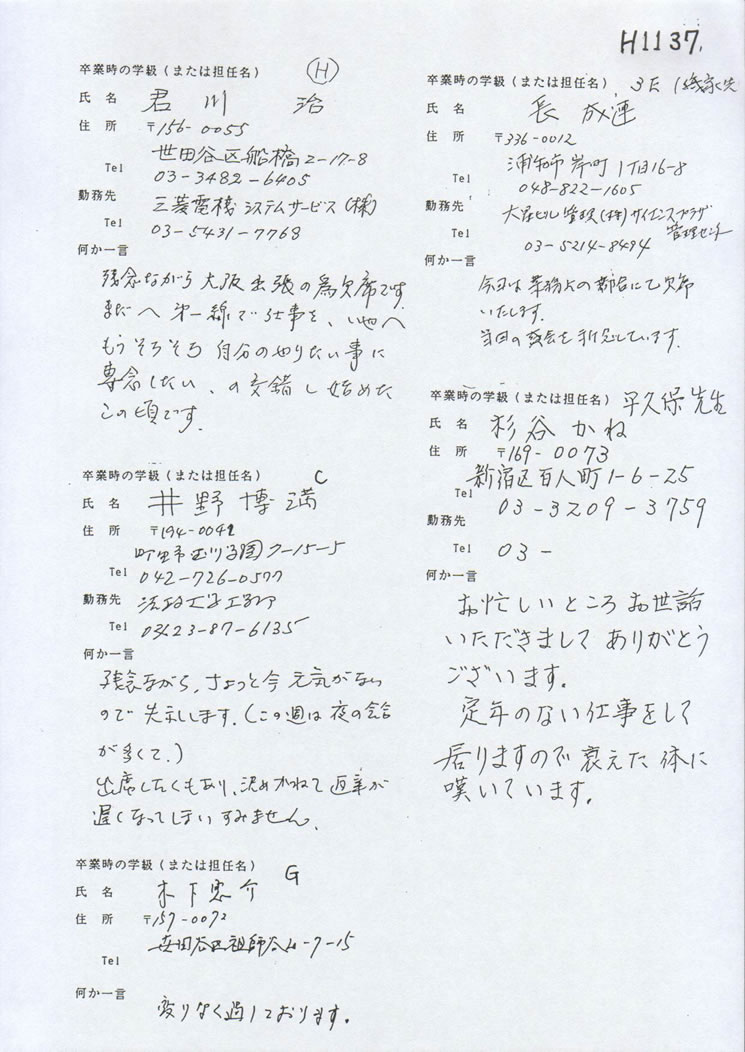 H11 37.
卒業時の学級(または担任名) H
氏 名 君川 治
住 所 〒156-0055
世田谷区船橋2-17-8
Tel 03-3482-6405
勤務先 三菱電機システムサービス(株)
Tel 03-5431-7768
何か一言
残念ながら大阪出張の為欠席です
まだへ第一線で仕事を、いやへ
もうそろそろ自分のやりたい事に
専念したい、の交錯し始めた
この頃です.
卒業時の学級(または担任名) C
氏 名 井野博満
住 所 〒194-0041
町田市玉川学園7-15-5
Tel 042-726-0577
勤務先 法政大学工学部
Tel 0423-87-6135
何か一言
残念ながら、ちょっと今元気がない
ので失礼します.(この週は夜の会合
が多くて.)
出席したくもあり、決めかねて返事が
遅くなってしまいすみません.
卒業時の学級(または担任名) G
氏 名 木下忠介
住 所 〒157-0072
世田谷区祖師谷4-7-15
Tel
何か一言
変りなく過しております。
卒業時の学級(または担任名) 3E
氏 名 長 成連
住 所 〒336-0012
浦和市岸町1丁目16-8
Tel 048-822-1605
勤務先 大星ビル管理(株)サイエンスプラザ
管理センター
Tel 03-5214-8494
何か一言
今回は業務上の都合にて欠席
いたします.
当日の盛会を祈念しています.
卒業時の学級(または担任名) 平久保先生
氏 名 杉谷かね
住 所 〒169-0073
新宿区百人町1-6-25
Tel 03-3209-3759
勤務先
Tel 03-
何か一言
お忙しいところお世話
いただきましてありがとう
ございます。
定年のない仕事をして
居りますので衰えた体に
嘆いています。